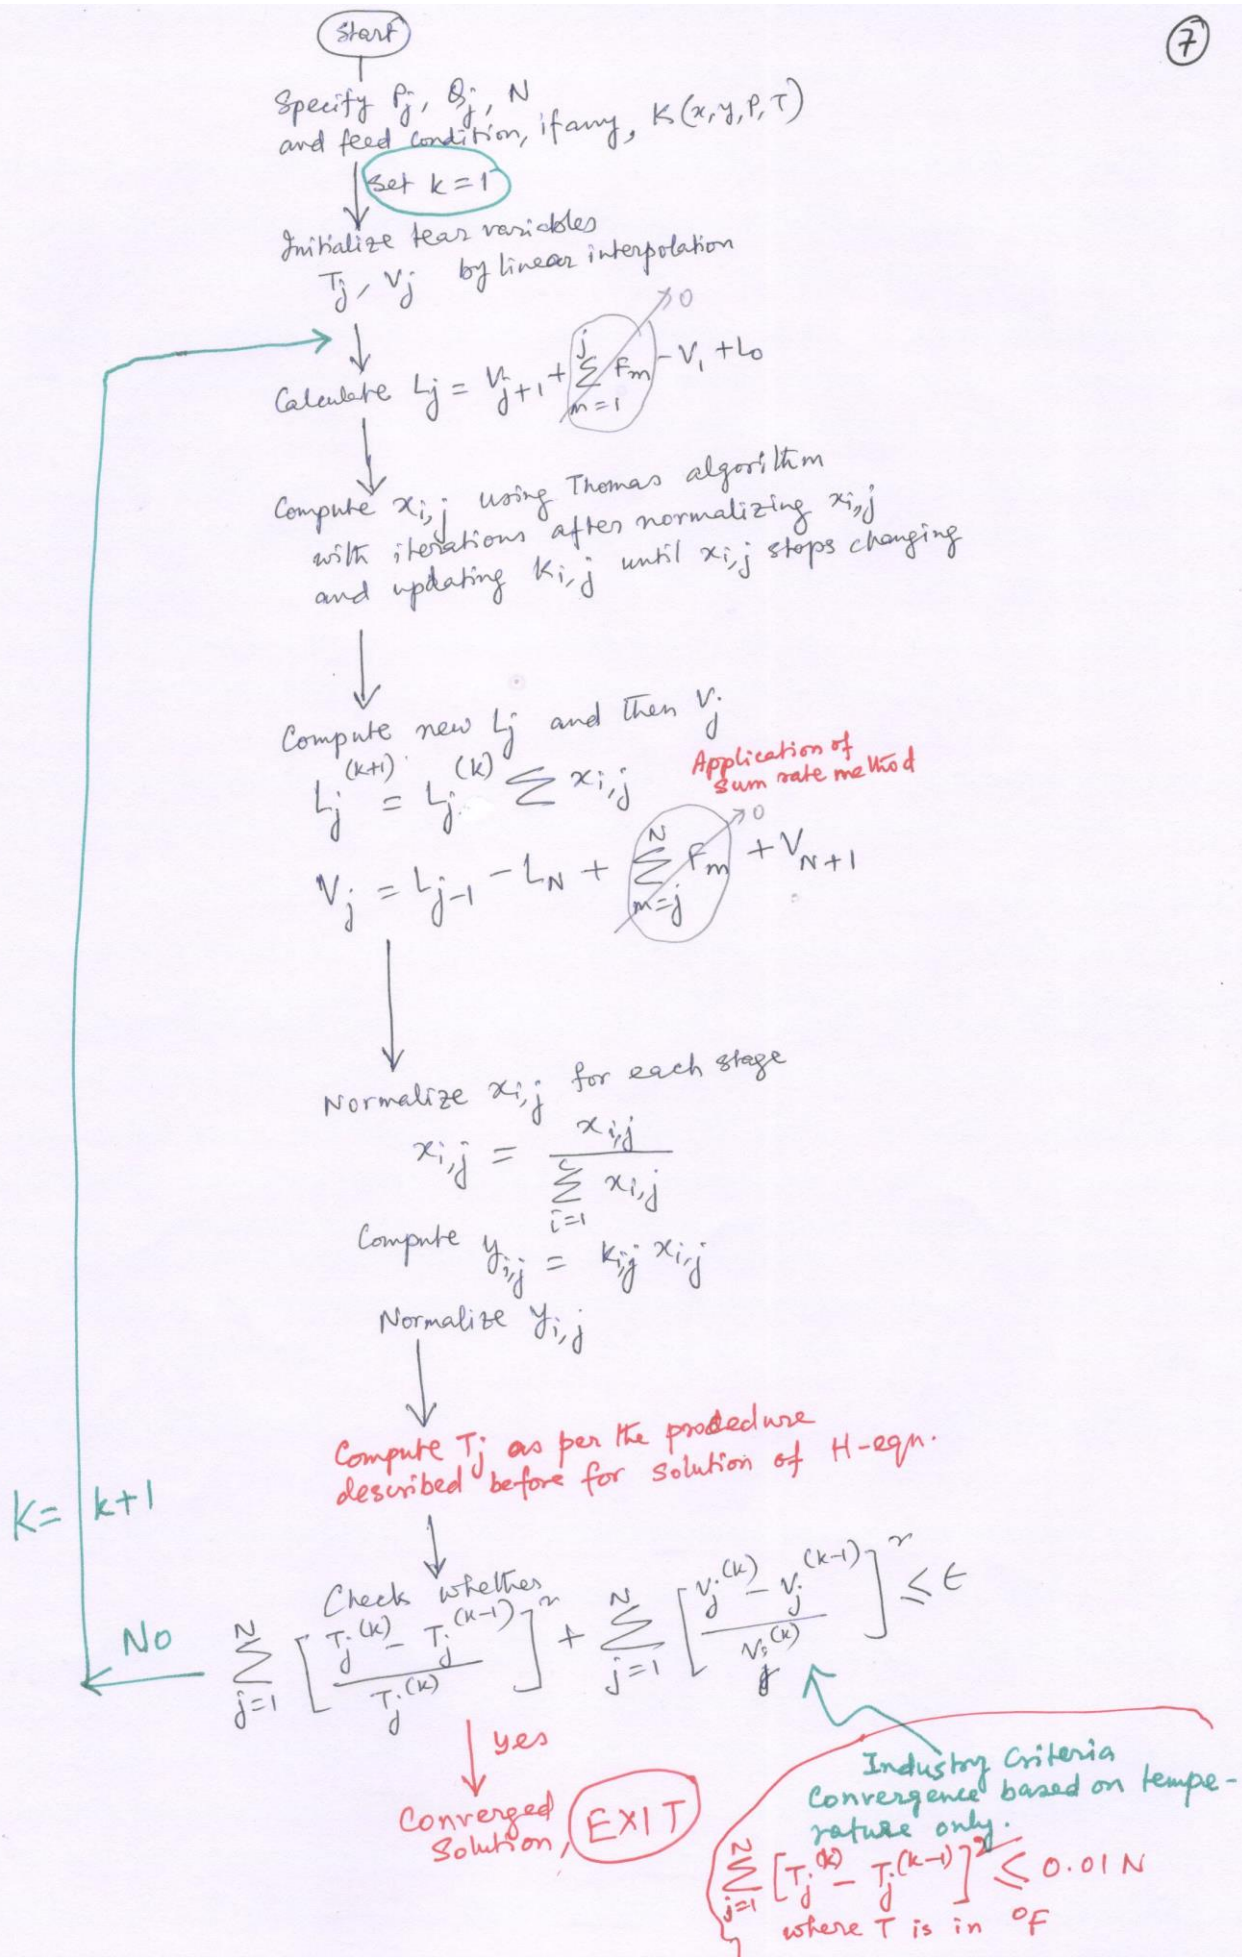 7
Start
Specify Pj, Qj, N
and feed condition, if any, K(x,y,P,T)
Set k=1
Initialize tear variables
Tj, Vj by linear interpolation
Calculate Lj = Vj+1 + ∑_{m=1}^{j} Fm → 0 − V1 + L0
Compute xi,j using Thomas algorithm
with iterations after normalizing xi,j
and updating Ki,j until xi,j stops changing
Compute new Lj and then Vj
Lj^(k+1) = Lj^(k) ∑ xi,j
Application of
sum rate method
Vj = Lj-1 − LN + ∑_{m=j}^{N} Fm → 0 + VN+1
Normalize xi,j for each stage
xi,j = xi,j / ∑_{i=1}^{c} xi,j
Compute yi,j = Ki,j xi,j
Normalize yi,j
Compute Tj as per the procedure
described before for solution of H-eqn.
k = k+1
Check whether
No
∑_{j=1}^{N} [(Tj^(k) − Tj^(k-1)) / Tj^(k)]^2 + ∑_{j=1}^{N} [(Vj^(k) − Vj^(k-1)) / Vj^(k)]^2 ≤ ϵ
yes
Converged
Solution, EXIT
Industry Criteria
Convergence based on tempe-
rature only.
∑_{j=1}^{N} [Tj^(k) − Tj^(k-1)]^2 ≤ 0.01 N
where T is in °F